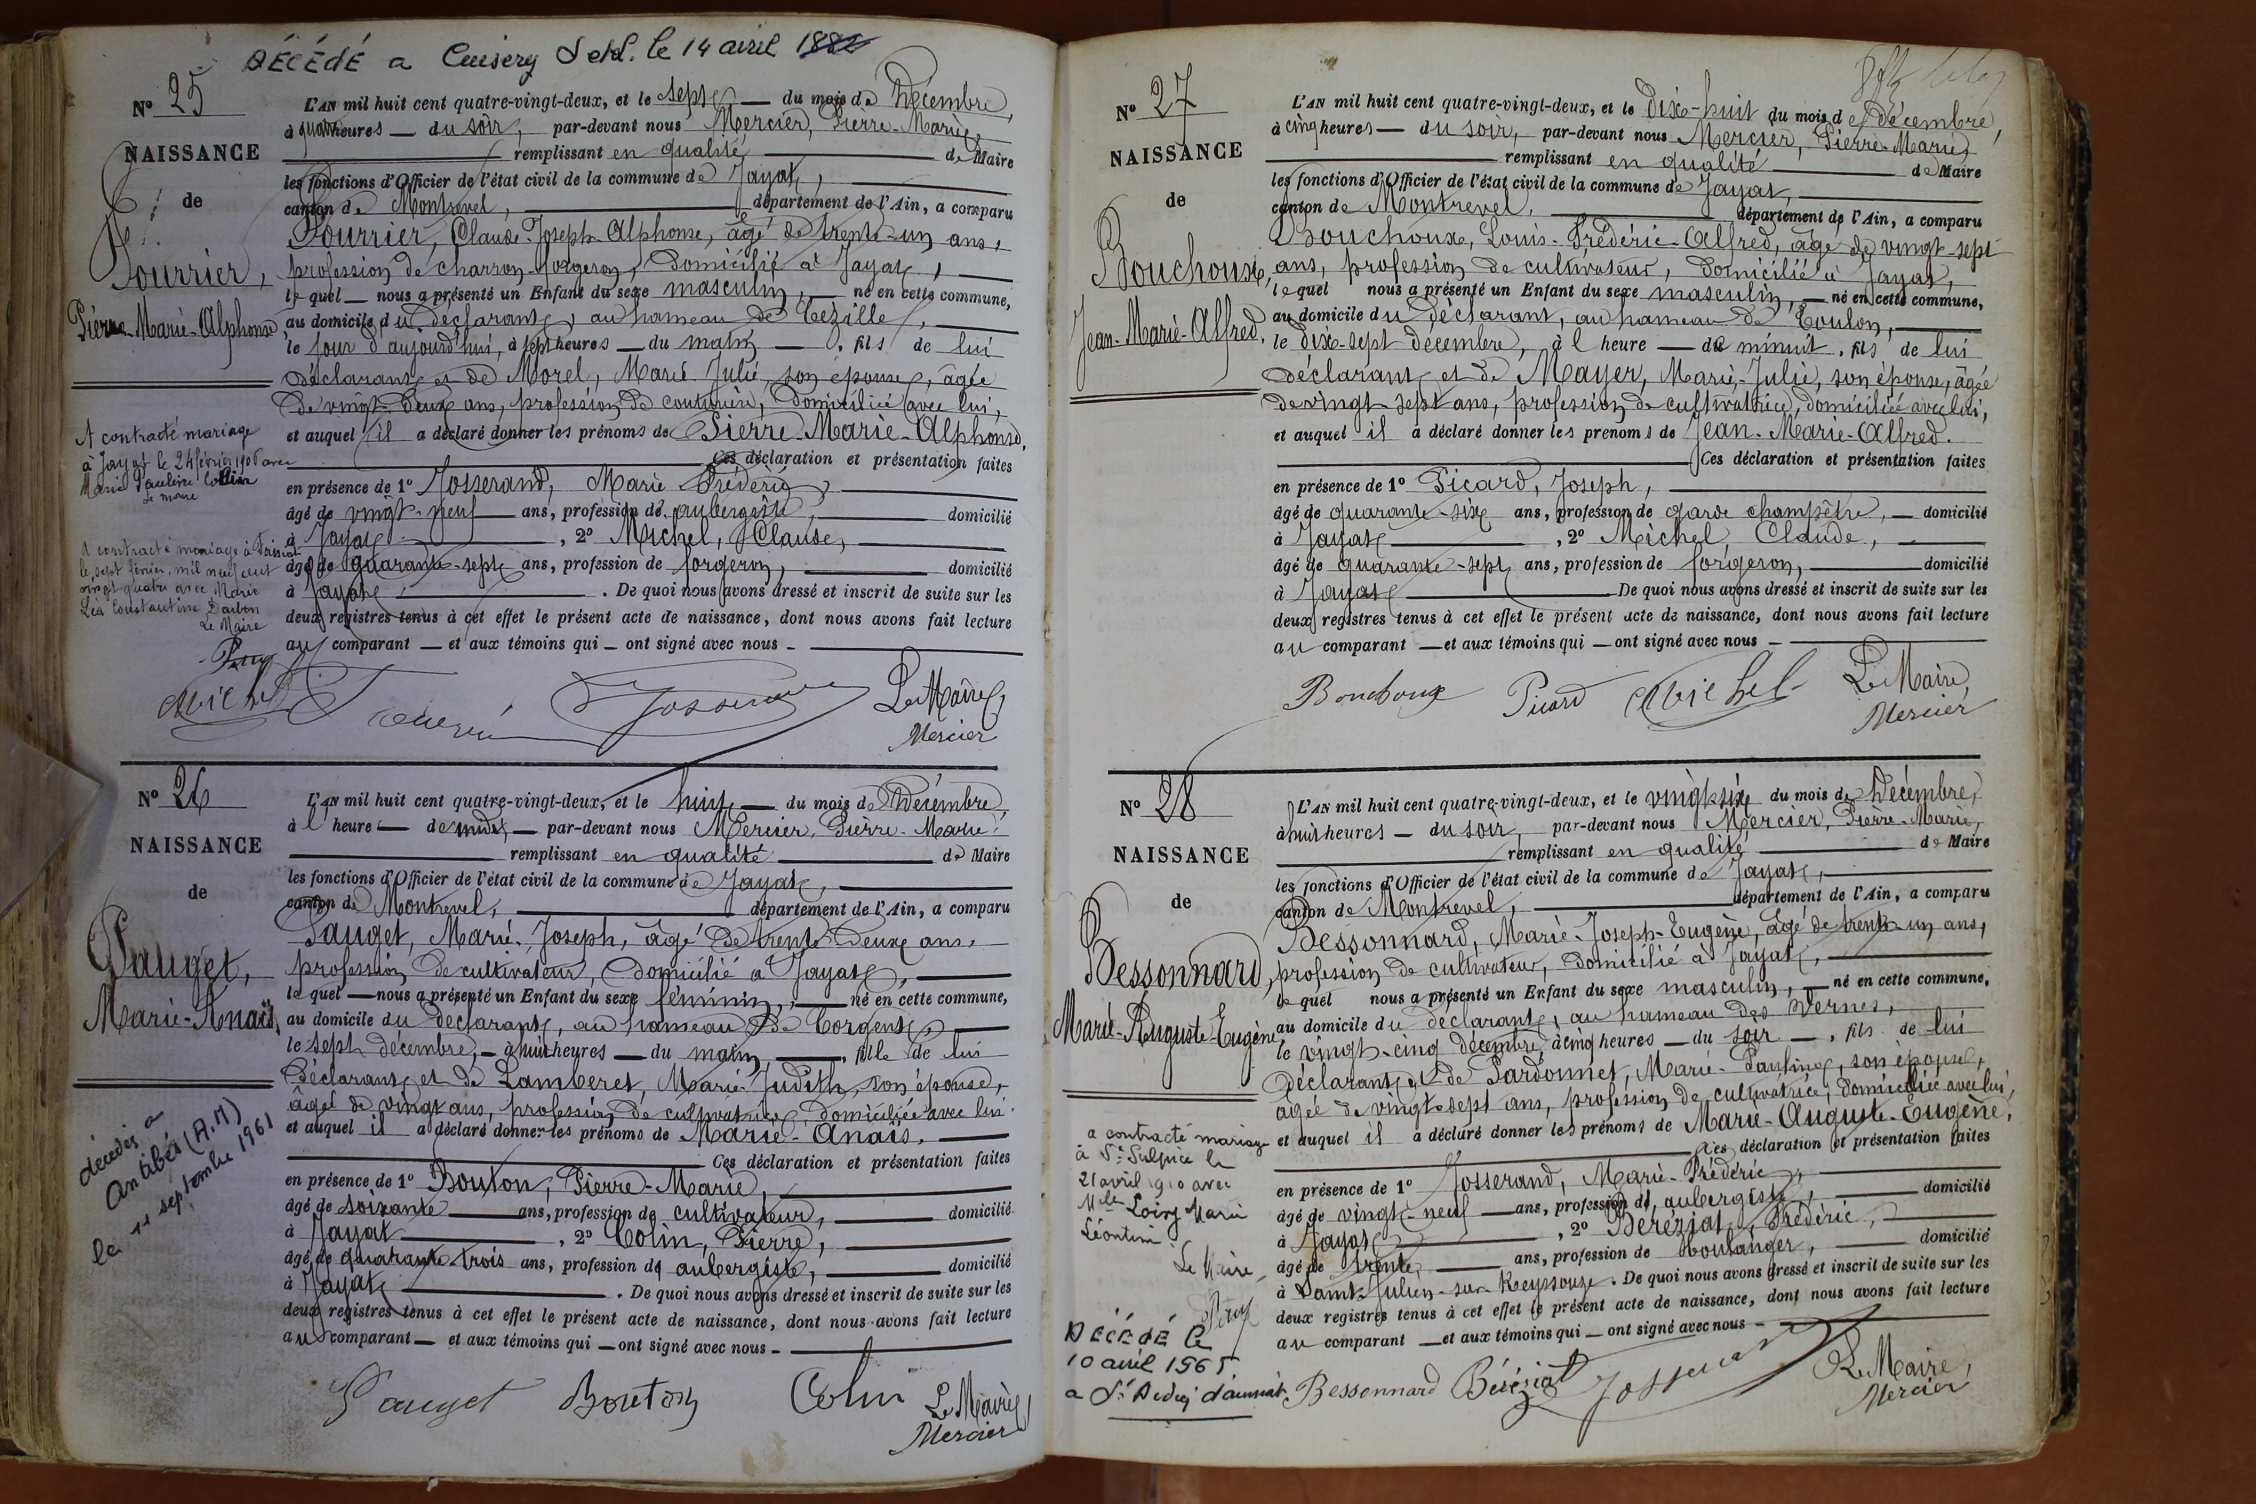 DÉCÉDÉ a Cuisery S et L. le 14 avril
N° 25
NAISSANCE
de
Pourrier,
Pierre-Marie-Alphonse
A contracté mariage
à Jayat le 24 février 1906 avec
Marie Pauline
Le maire
A contracté mariage à
le sept février, mil neuf cent
vingt quatre avec Marie
Léa Constantine Darbon
Le Maire
L'AN mil huit cent quatre-vingt-deux, et le sept — du mois de Décembre,
à quatre heures — du soir, par-devant nous Mercier, Pierre-Marie,
remplissant en qualité de Maire
les fonctions d'Officier de l'état civil de la commune de Jayat,
canton de Montrevel, département de l'Ain, a comparu
Pourrier, Claude-Joseph-Alphonse, âgé de trente-un ans,
profession de charron-forgeron, domicilié à Jayat,
le quel — nous a présenté un Enfant du sexe masculin, — né en cette commune,
au domicile du déclarant, au hameau de Cézille,
le jour d'aujourd'hui, à sept heures — du matin — , fils de lui
déclarant et de Morel, Marie-Julie, son épouse, âgée
de vingt-deux ans, profession de couturière, domiciliée avec lui,
et auquel il a déclaré donner les prénoms de Pierre-Marie-Alphonse.
Ces déclaration et présentation faites
en présence de 1° Josserand, Marie Frédéric,
âgé de vingt-neuf — ans, profession de aubergiste, domicilié
à Jayat, 2° Michel, Claude,
âgé de quarante-sept ans, profession de forgeron, domicilié
à Jayat. De quoi nous avons dressé et inscrit de suite sur les
deux registres tenus à cet effet le présent acte de naissance, dont nous avons fait lecture
au comparant — et aux témoins qui — ont signé avec nous -
Michel Josserand Le Maire,
Mercier
N° 26
NAISSANCE
de
Pauget,
Marie-Anaïs,
décédée a
Antibes (A.M)
le 11 septembre 1961
L'AN mil huit cent quatre-vingt-deux, et le huit — du mois de Décembre
à l' heure — de midi, — par-devant nous Mercier, Pierre-Marie,
remplissant en qualité de Maire
les fonctions d'Officier de l'état civil de la commune de Jayat,
canton de Montrevel, département de l'Ain, a comparu
Pauget, Marie-Joseph, âgé de trente-deux ans,
profession de cultivateur, domicilié à Jayat,
le quel — nous a présenté un Enfant du sexe féminin, — né en cette commune,
au domicile du déclarant, au hameau de Corgent,
le sept décembre, — à huit heures — du matin, fille de lui
déclarant et de Lamberet, Marie-Judith, son épouse,
âgée de vingt ans, profession de cultivatrice, domiciliée avec lui
et auquel il a déclaré donner les prénoms de Marie-Anaïs.
Ces déclaration et présentation faites
en présence de 1° Bouton, Pierre-Marie,
âgé de soixante ans, profession de cultivateur, domicilié
à Jayat, 2° Colin, Pierre,
âgé de quarante-trois ans, profession de aubergiste, domicilié
à Jayat. De quoi nous avons dressé et inscrit de suite sur les
deux registres tenus à cet effet le présent acte de naissance, dont nous avons fait lecture
au comparant — et aux témoins qui — ont signé avec nous -
Pauget Bouton Colin Le Maire,
Mercier
N° 27
NAISSANCE
de
Bouchoux,
Jean-Marie-Alfred.
L'AN mil huit cent quatre-vingt-deux, et le dix-huit du mois de décembre,
à cinq heures — du soir, par-devant nous Mercier, Pierre-Marie,
remplissant en qualité de Maire
les fonctions d'Officier de l'état civil de la commune de Jayat,
canton de Montrevel, département de l'Ain, a comparu
Bouchoux, Louis-Frédéric-Alfred, âgé de vingt-sept
ans, profession de cultivateur, domicilié à Jayat,
le quel nous a présenté un Enfant du sexe masculin, — né en cette commune,
au domicile du déclarant, au hameau de Toulon,
le dix-sept décembre, à l' heure — de minuit, fils de lui
déclarant et de Mayer, Marie-Julie, son épouse, âgée
de vingt-sept ans, profession de cultivatrice, domiciliée avec lui,
et auquel il a déclaré donner les prénoms de Jean-Marie-Alfred.
Ces déclaration et présentation faites
en présence de 1° Picard, Joseph,
âgé de quarante-six ans, profession de garde champêtre, — domicilié
à Jayat, 2° Michel, Claude,
âgé de quarante-sept ans, profession de forgeron, domicilié
à Jayat De quoi nous avons dressé et inscrit de suite sur les
deux registres tenus à cet effet le présent acte de naissance, dont nous avons fait lecture
au comparant — et aux témoins qui — ont signé avec nous -
Bouchoux Picard Michel Le Maire
Mercier
N° 28
NAISSANCE
de
Bessonnard,
Marie-Auguste-Eugène,
a contracté mariage
à St Sulpice le
21 avril 1910 avec
Mlle Loisy Marie
Léontine
Le Maire,
DÉCÉDÉ le
10 avril 1965
a St Didier d'aussiat
L'AN mil huit cent quatre-vingt-deux, et le vingt-six du mois de Décembre,
à huit heures — du soir, par-devant nous Mercier, Pierre-Marie,
remplissant en qualité de Maire
les fonctions d'Officier de l'état civil de la commune de Jayat,
canton de Montrevel, département de l'Ain, a comparu
Bessonnard, Marie-Joseph-Eugène, âgé de trente-un ans,
profession de cultivateur, domicilié à Jayat,
le quel nous a présenté un Enfant du sexe masculin, — né en cette commune,
au domicile du déclarant, au hameau des Vernes,
le vingt-cinq décembre, à cinq heures — du soir — , fils de lui
déclarant et de Pardonnet, Marie-Pauline, son épouse,
âgée de vingt-sept ans, profession de cultivatrice, domiciliée avec lui,
et auquel il a déclaré donner les prénoms de Marie-Auguste-Eugène,
Ces déclaration et présentation faites
en présence de 1° Josserand, Marie-Frédéric,
âgé de vingt-neuf — ans, profession de aubergiste, domicilié
à Jayat, 2° Béréziat, Frédéric,
âgé de trente ans, profession de boulanger, domicilié
à Saint-Julien-sur-Reyssouze. De quoi nous avons dressé et inscrit de suite sur les
deux registres tenus à cet effet le présent acte de naissance, dont nous avons fait lecture
au comparant — et aux témoins qui — ont signé avec nous -
Bessonnard Béréziat Josserand Le Maire,
Mercier